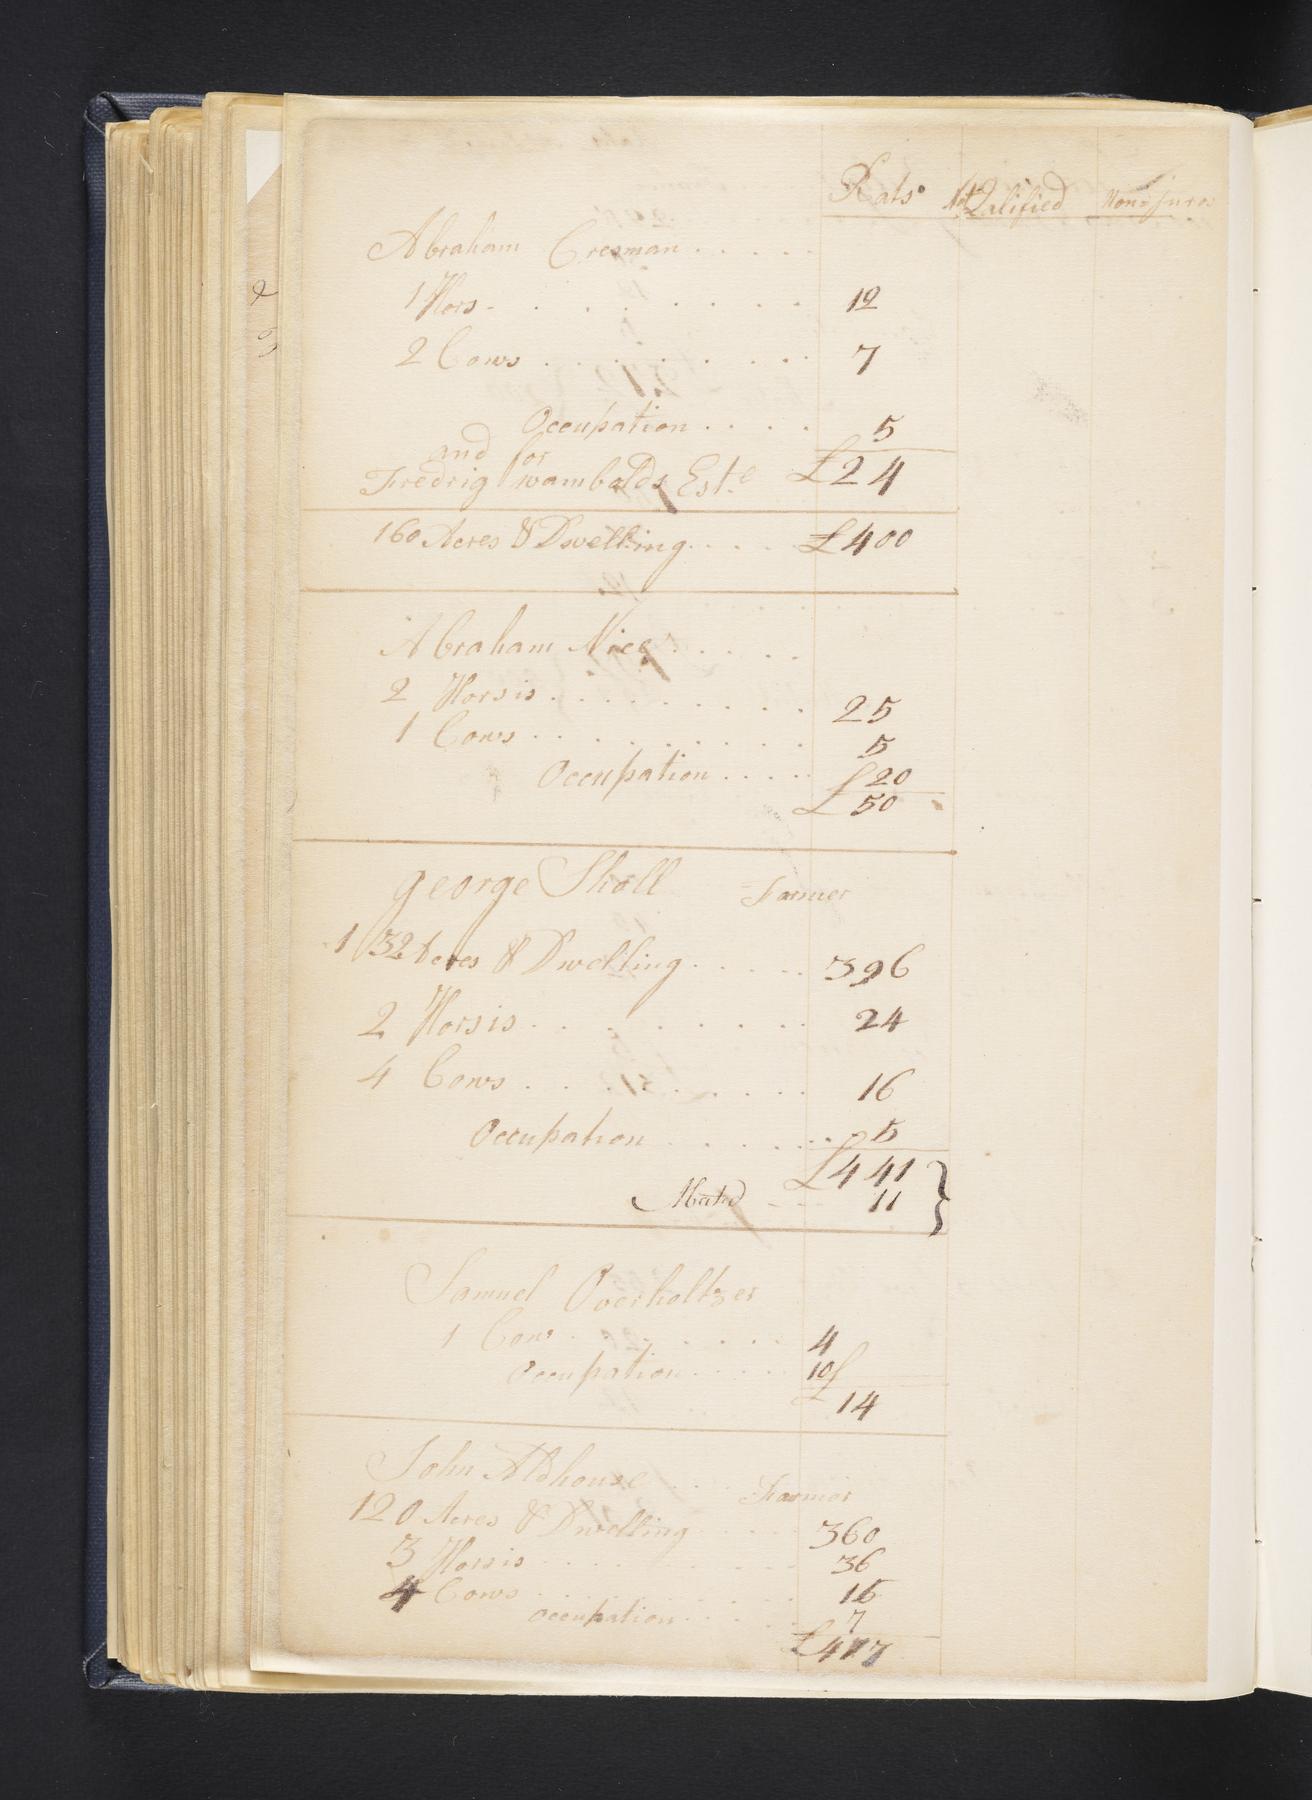 Rats. Not Qalified Non=juros
Abraham Cresman . . . . .
1 Hors . . . . . . . 12
2 Cows . . . . . . . 7
Occupation . . . . 5
and for
Fredrig wambolds Est.e £24
160 Acres & Dwelling . . . . £400
Abraham Nice . . . . .
2 Horsis . . . . . . . . 25
1 Cows . . . . . . . . 5
Occupation . . . . £20
£50
george Sholl Farmer
132 Acres & Dwelling . . . . . 396
2 Horsis . . . . . . . 24
4 Cows . . . . . . . 16
Occupation . . . . . . 5
£441
Abated - - - 11
Samuel Overholtzer
1 Cow . . . . . . . 4
Occupation . . . . . 10
£14
John Aldhouse . . . Farmer
120 Acres & Dwelling . . . . 360
3 Horsis . . . . . . . 36
4 Cows . . . . . . . 16
Occupation . . . . . 7
£417